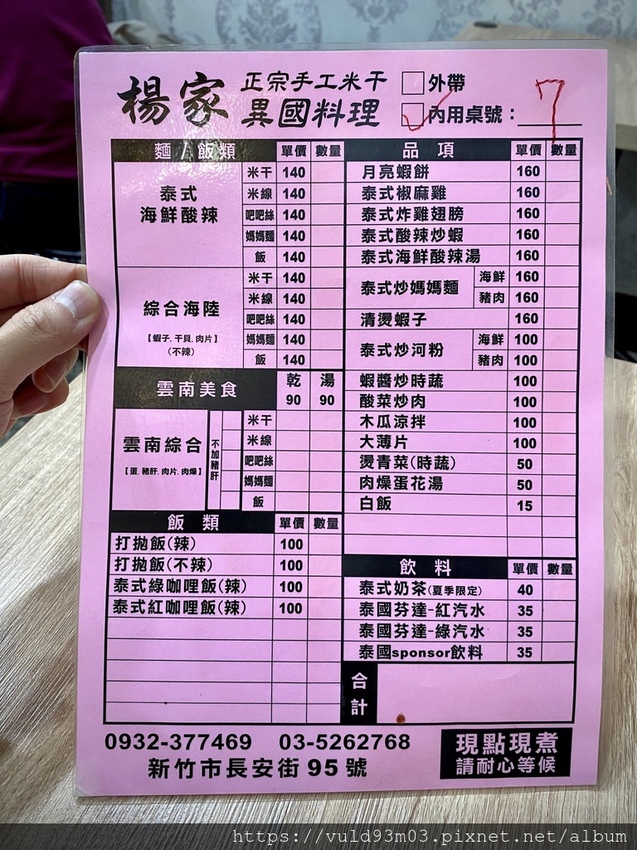 楊家 正宗手工米干 異國料理
外帶
✓ 內用桌號：7
麵/飯類 單價 數量
泰式海鮮酸辣
米干 140
米線 140
粑粑絲 140
媽媽麵 140
飯 140
綜合海陸
【蝦子.干貝.肉片】
(不辣)
米干 140
米線 140
粑粑絲 140
媽媽麵 140
飯 140
雲南美食 乾 湯
90 90
雲南綜合
【蛋.豬肝.肉片.肉燥】
不加豬肝
米干
米線
粑粑絲
媽媽麵
飯
飯類 單價 數量
打拋飯(辣) 100
打拋飯(不辣) 100
泰式綠咖哩飯(辣) 100
泰式紅咖哩飯(辣) 100
品項 單價 數量
月亮蝦餅 160
泰式椒麻雞 160
泰式炸雞翅膀 160
泰式酸辣炒蝦 160
泰式海鮮酸辣湯 160
泰式炒媽媽麵 海鮮 160
豬肉 160
清燙蝦子 160
泰式炒河粉 海鮮 100
豬肉 100
蝦醬炒時蔬 100
酸菜炒肉 100
木瓜涼拌 100
大薄片 100
燙青菜(時蔬) 50
肉燥蛋花湯 50
白飯 15
飲料 單價 數量
泰式奶茶(夏季限定) 40
泰國芬達-紅汽水 35
泰國芬達-綠汽水 35
泰國sponsor飲料 35
合計
0932-377469 03-5262768
新竹市長安街95號
現點現煮
請耐心等候
https://vuld93m03.pixnet.net/album